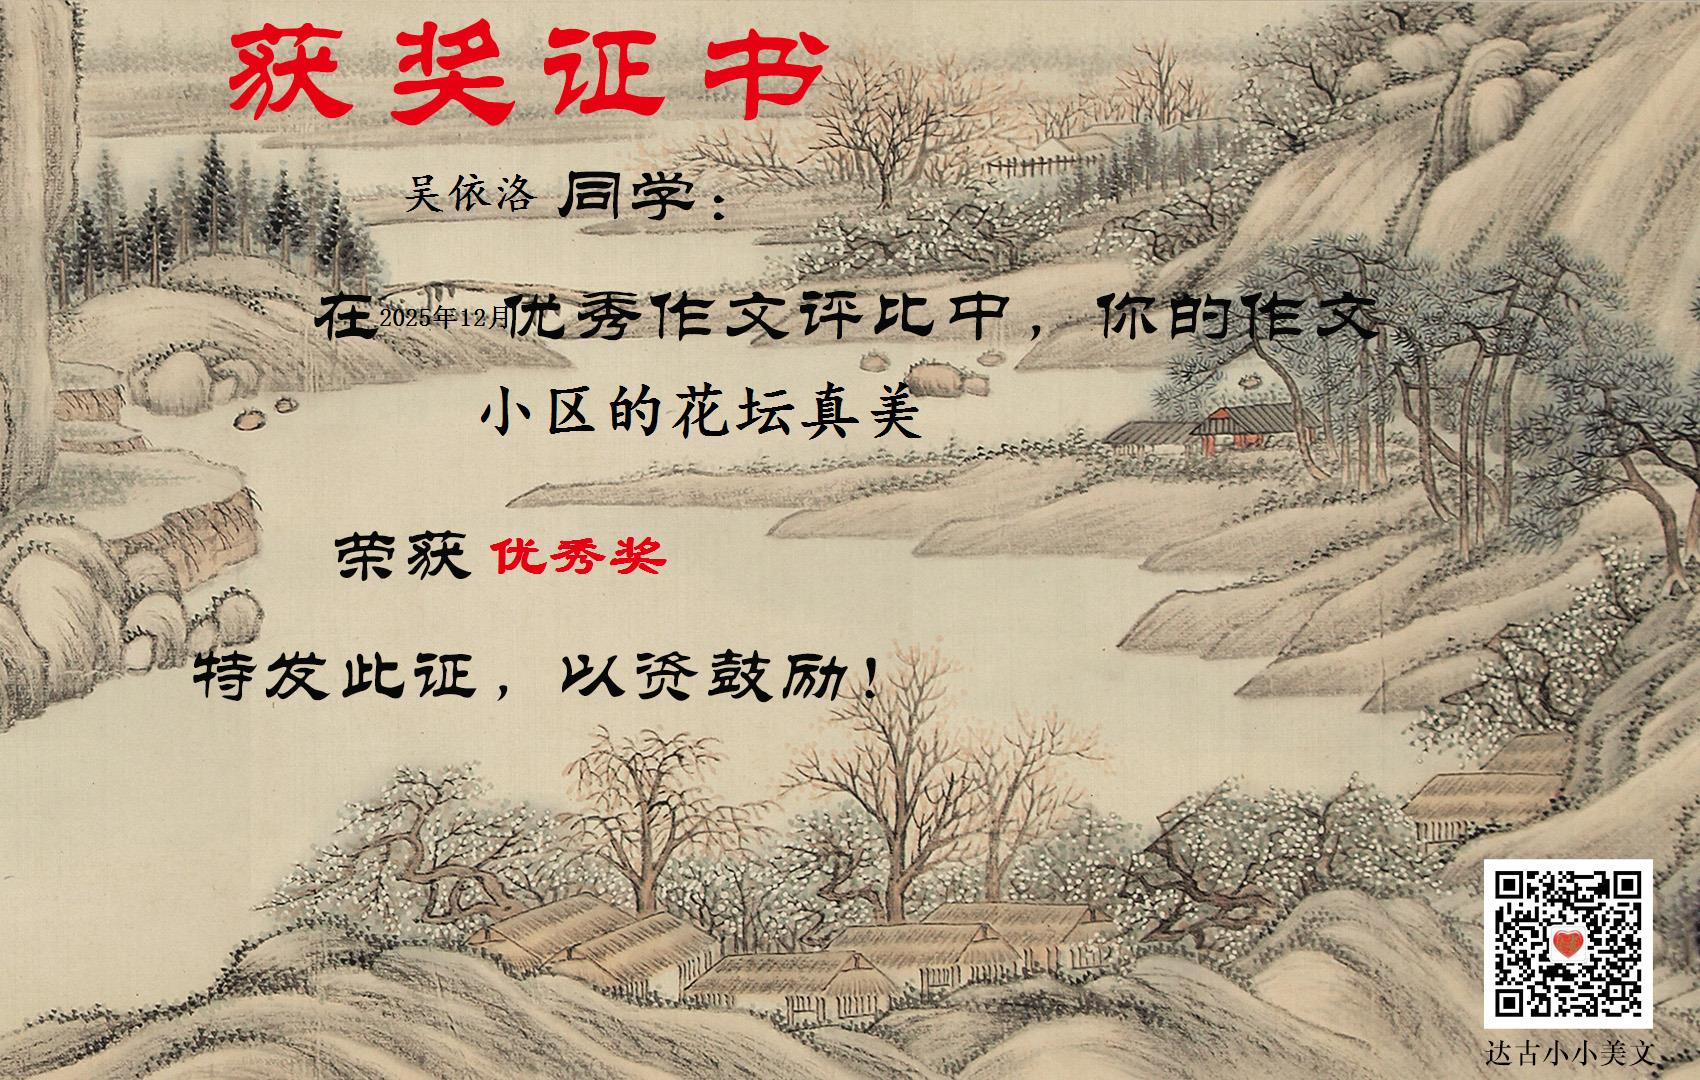 获奖证书
吴依洛 同学：
在2025年12月优秀作文评比中，你的作文
小区的花坛真美
荣获 优秀奖
特发此证，以资鼓励！
达古小小美文